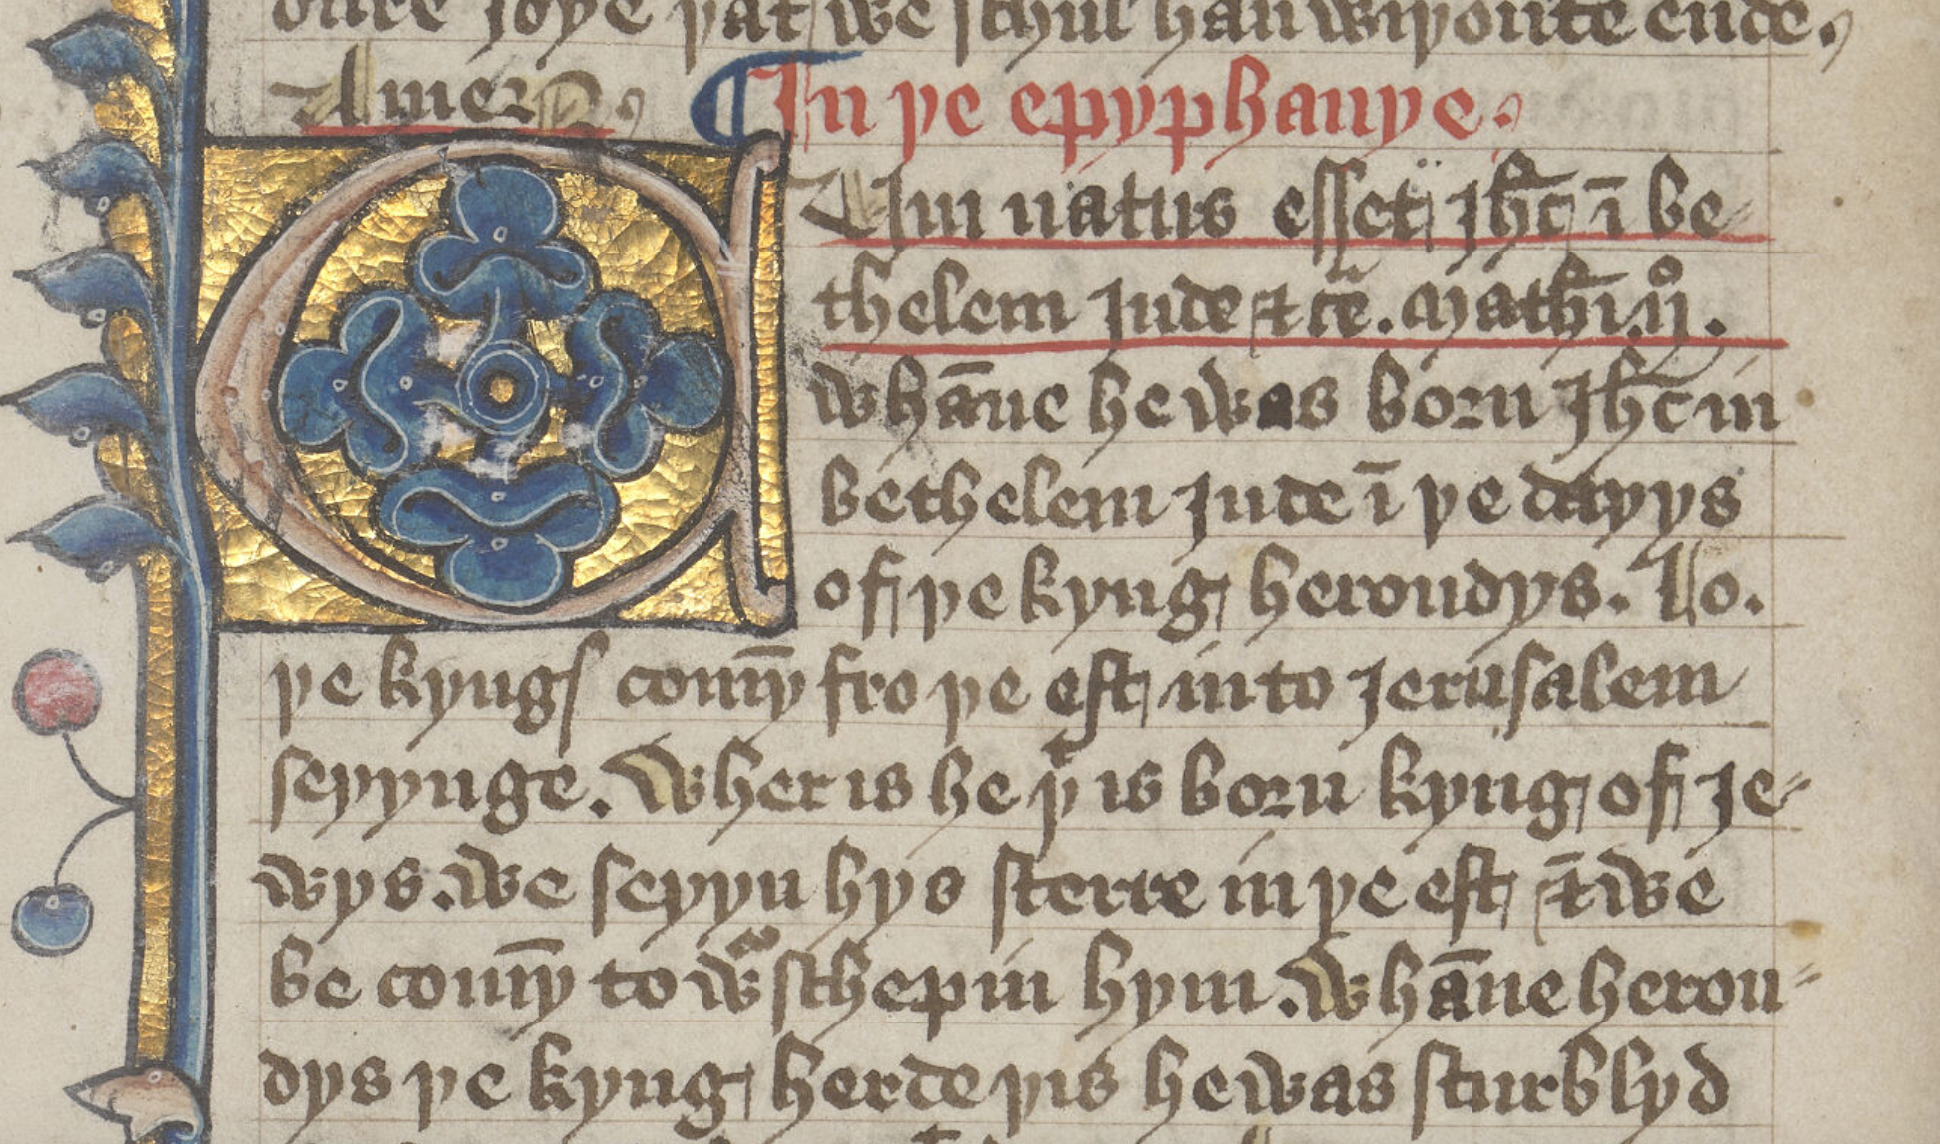 oure joye þat we schul han wiþoute ende.
Amen. ¶ In þe epyphanye.
Cum natus esset ihc̄ ī be
thelem Jude ⁊ cē. Mathī. ijº.
whāne he was born ihc̄ in
bethelem Jude ī þe dayys
of þe kyng heroudys. Lo.
þe kyngs comȳ fro þe est into Jerusalem
seyynge. Wher is he þᵗ is born kyng of Je
wys. we seyyn hys sterre in þe est ⁊ we
be comȳ to wᵒschepin hym. Whāne herou
dys þe kyng herde þis he was sturblyd